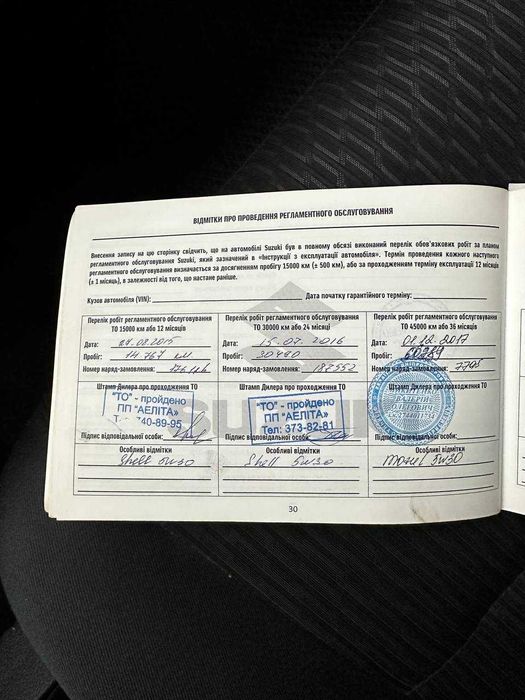 ВІДМІТКИ ПРО ПРОВЕДЕННЯ РЕГЛАМЕНТНОГО ОБСЛУГОВУВАННЯ
Внесення запису на цю сторінку свідчить, що на автомобілі Suzuki був в повному обсязі виконаний перелік обов'язкових робіт за планом
регламентного обслуговування Suzuki, який зазначений в «Інструкції з експлуатації автомобіля». Термін проведення кожного наступного
регламентного обслуговування визначається за досягненням пробігу 15000 км (± 500 км), або за проходженням терміну експлуатації 12 місяців
(± 1 місяць), в залежності від того, що настане раніше.
Кузов автомобіля (VIN): Дата початку гарантійного терміну:
Перелік робіт регламентного обслуговування
ТО 15000 км або 12 місяців
Дата: 27.08.2015
Пробіг: 14767 км
Номер наряд-замовлення:
Штамп Дилера про проходження ТО
"ТО" - пройдено
ПП "АЕЛІТА»
740-89-95
Підпис відповідальної особи:
Особливі відмітки
Shell 5W30
Перелік робіт регламентного обслуговування
ТО 30000 км або 24 місяці
Дата: 15.07.2016
Пробіг: 30490
Номер наряд-замовлення: 182552
Штамп Дилера про проходження ТО
"ТО" - пройдено
ПП "АЕЛІТА»
Тел: 373-82-81
Підпис відповідальної особи:
Особливі відмітки
Shell 5W30
Перелік робіт регламентного обслуговування
ТО 45000 км або 36 місяців
Дата: 01.12.2017
Пробіг: 60289
Номер наряд-замовлення: 7795
Штамп Дилера про проходження ТО
ВАЛЕРІЙ
ОЛЕГОВИЧ
Підпис відповідальної особи:
Особливі відмітки
5W30
30